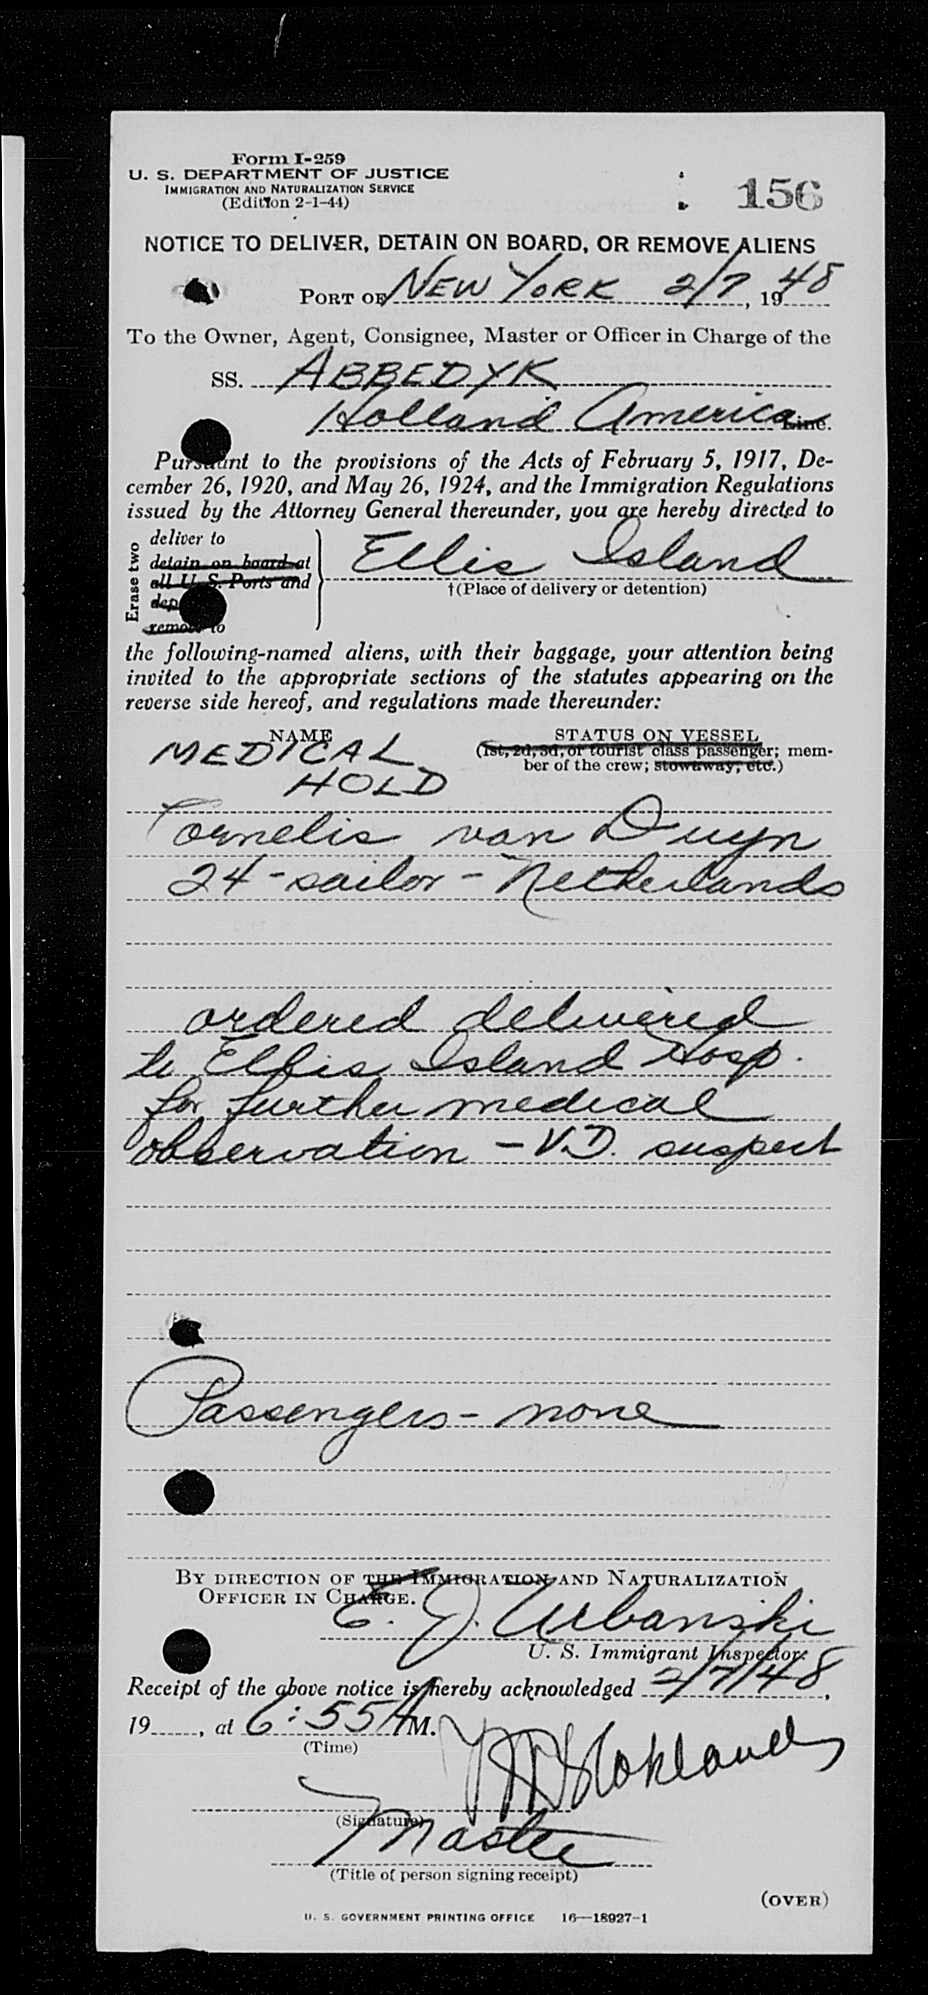 Form I-259
U. S. DEPARTMENT OF JUSTICE
IMMIGRATION AND NATURALIZATION SERVICE
(Edition 2-1-44)
156
NOTICE TO DELIVER, DETAIN ON BOARD, OR REMOVE ALIENS
PORT OF NEW YORK 2/7, 1948
To the Owner, Agent, Consignee, Master or Officer in Charge of the
SS. ABBEDYK
Holland America Line.
Pursuant to the provisions of the Acts of February 5, 1917, De-
cember 26, 1920, and May 26, 1924, and the Immigration Regulations
issued by the Attorney General thereunder, you are hereby directed to
Erase two
deliver to
detain on board at
all U. S. Ports and
dep
remove to
Ellis Island
†(Place of delivery or detention)
the following-named aliens, with their baggage, your attention being
invited to the appropriate sections of the statutes appearing on the
reverse side hereof, and regulations made thereunder:
NAME STATUS ON VESSEL
(1st, 2d, 3d, or tourist class passenger; mem-
ber of the crew; stowaway, etc.)
MEDICAL
HOLD
Cornelis van Duyn
24 - sailor - Netherlands
ordered delivered
to Ellis Island Hosp.
for further medical
observation - V.D. suspect
Passengers - none
BY DIRECTION OF THE IMMIGRATION AND NATURALIZATION
OFFICER IN CHARGE.
E. J. Urbanski
U. S. Immigrant Inspector.
Receipt of the above notice is hereby acknowledged 2/7/48,
19____, at 6:55 AM.
(Time)
(Signature)
Master
(Title of person signing receipt)
(OVER)
U. S. GOVERNMENT PRINTING OFFICE 16—18927-1